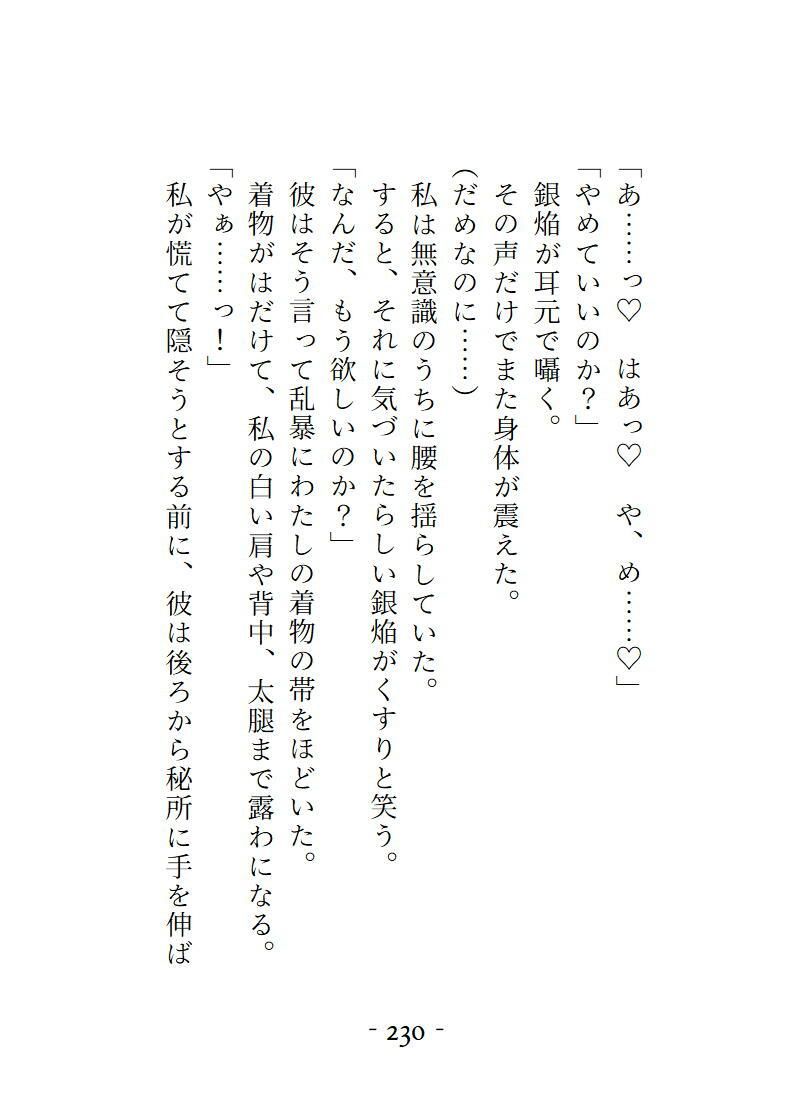 「あ……っ♡　はあっ♡　や、め……♡」
「やめていいのか？」
銀焔が耳元で囁く。
その声だけでまた身体が震えた。
(だめなのに……)
私は無意識のうちに腰を揺らしていた。
すると、それに気づいたらしい銀焔がくすりと笑う。
「なんだ、もう欲しいのか？」
彼はそう言って乱暴にわたしの着物の帯をほどいた。
着物がはだけて、私の白い肩や背中、太腿まで露わになる。
「やぁ……っ！」
私が慌てて隠そうとする前に、彼は後ろから秘所に手を伸ば
- 230 -